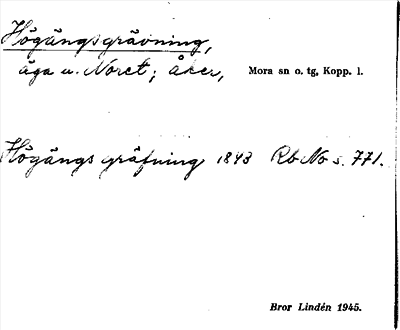 Högängsgrävning,
äga u. Noret; åker, Mora sn o. tg, Kopp. l.
Högängs gräfning 1843 Rb No s. 771.
Bror Lindén 1945.